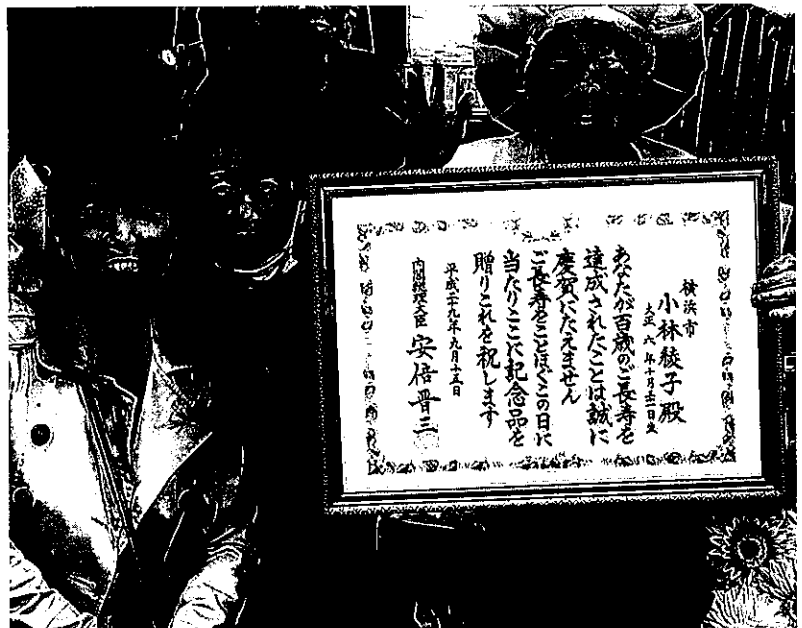 横浜市
小林綾子殿
大正六年十月二十一日生
あなたが百歳のご長寿を
達成されたことは誠に
慶賀にたえません
ご長寿をことほぐこの日に
当たりここに記念品を
贈りこれを祝します
平成二十九年九月十五日
内閣総理大臣 安倍晋三